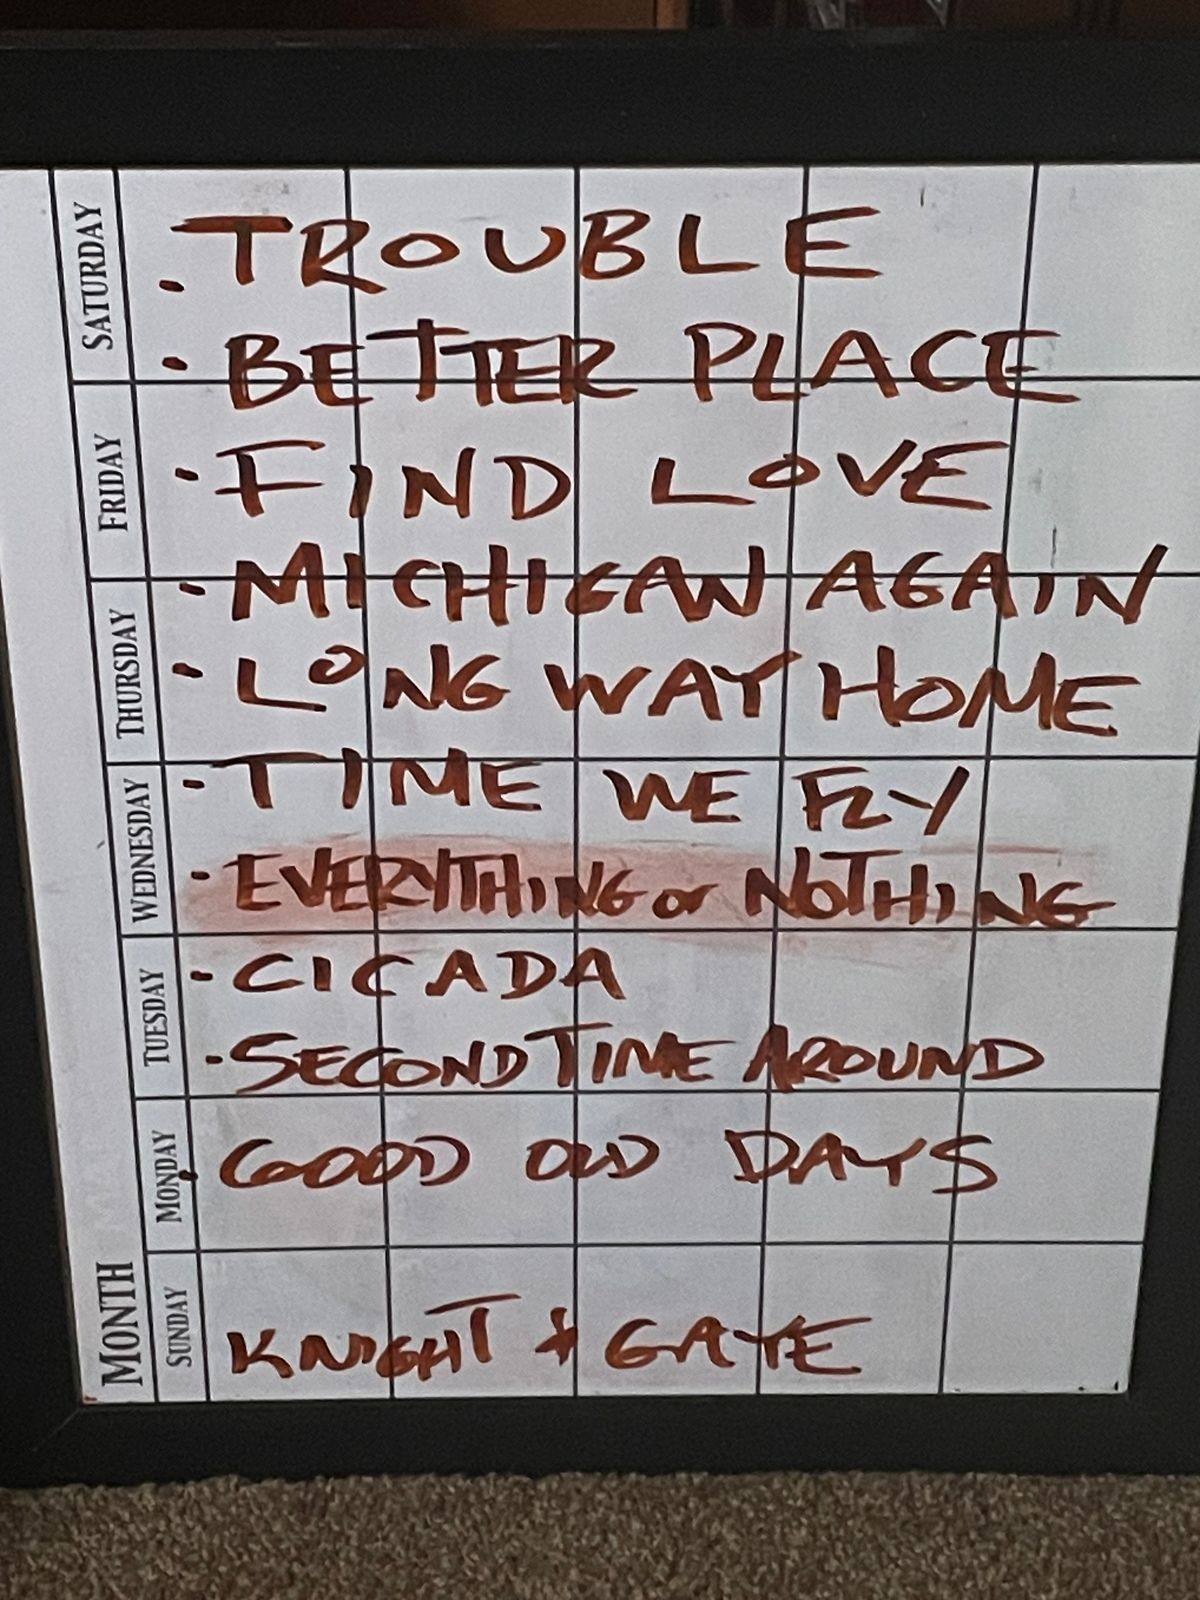 • TROUBLE
• BETTER PLACE
• FIND LOVE
• MICHIGAN AGAIN
• LONG WAY HOME
• TIME WE FLY
• EVERYTHING or NOTHING
• CICADA
• SECOND TIME AROUND
• GOOD OLD DAYS
KNIGHT & GAYE
MONTH
SUNDAY
MONDAY
TUESDAY
WEDNESDAY
THURSDAY
FRIDAY
SATURDAY